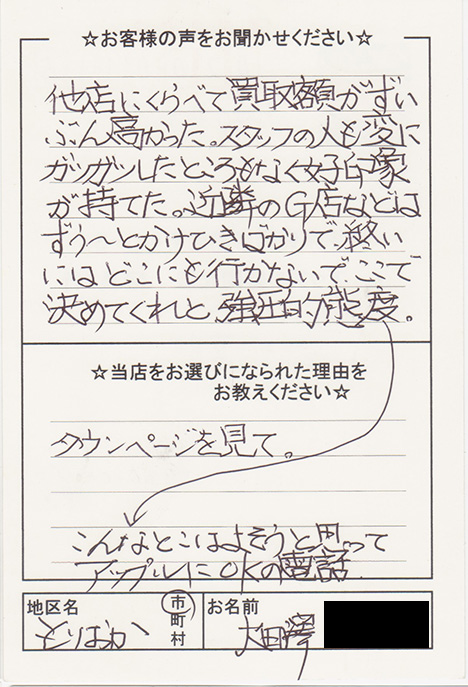 ☆お客様の声をお聞かせください☆
他店にくらべて買取額がずい
ぶん高かった。スタッフの人も変に
ガツガツしたところもなく好印象
が持てた。近隣のG店などは
ずぅ〜とかけひきばかりで、終い
にはどこにも行かないで、ここで
決めてくれと、強圧的態度。
☆当店をお選びになられた理由を
お教えください☆
タウンページを見て。
こんなとこはよそうと思って
アップルにOKの電話
地区名
とりおか
市
町
村
お名前
大田澤